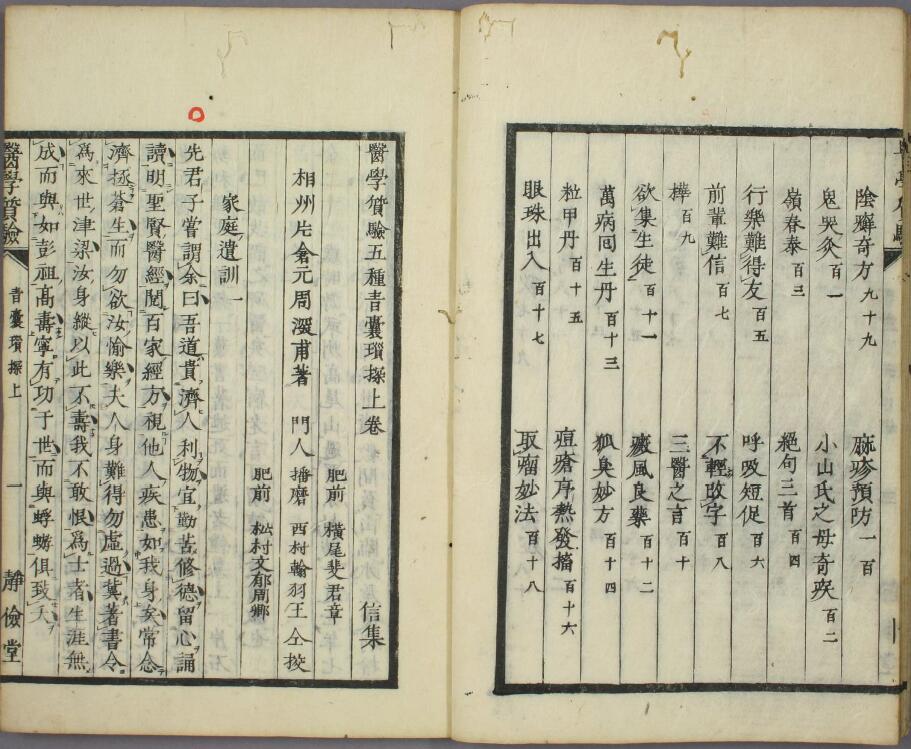 陰癬奇方 九十九 麻疹預防 一百
鬼哭灸 百一 小山氏之母奇疾 百二
嶺春泰 百三 絕句三首 百四
行樂難得友 百五 呼吸短促 百六
前輩難信 百七 不輕改字 百八
樺 百九 三醫之言 百十
欲集生徒 百十一 癜風良藥 百十二
萬病回生丹 百十三 狐臭妙方 百十四
粒甲丹 百十五 痘瘡序熱發搐 百十六
眼珠出入 百十七 取瘤妙法 百十八
醫學質驗五種青囊瑣探上卷 信集
肥前 橫尾斐君章
相州片倉元周深甫著 門人 播磨 西村翰羽王 仝挍
肥前 松村文郁周卿
家庭遺訓一
先君子嘗謂余曰吾道貴濟人利物宜勤苦修德留心誦
讀明聖賢醫經閱百家經方視他人疾患如我身矣常念
濟拯蒼生而勿欲汝愉樂夫人身難得勿虛過冀著書令
爲來世津梁汝身縱以此不壽我不敢恨爲士者生涯無
成而與如彭祖高壽寧有功于世而與蜉蝣俱致夭
醫學質驗 青囊瑣探上 一 靜儉堂